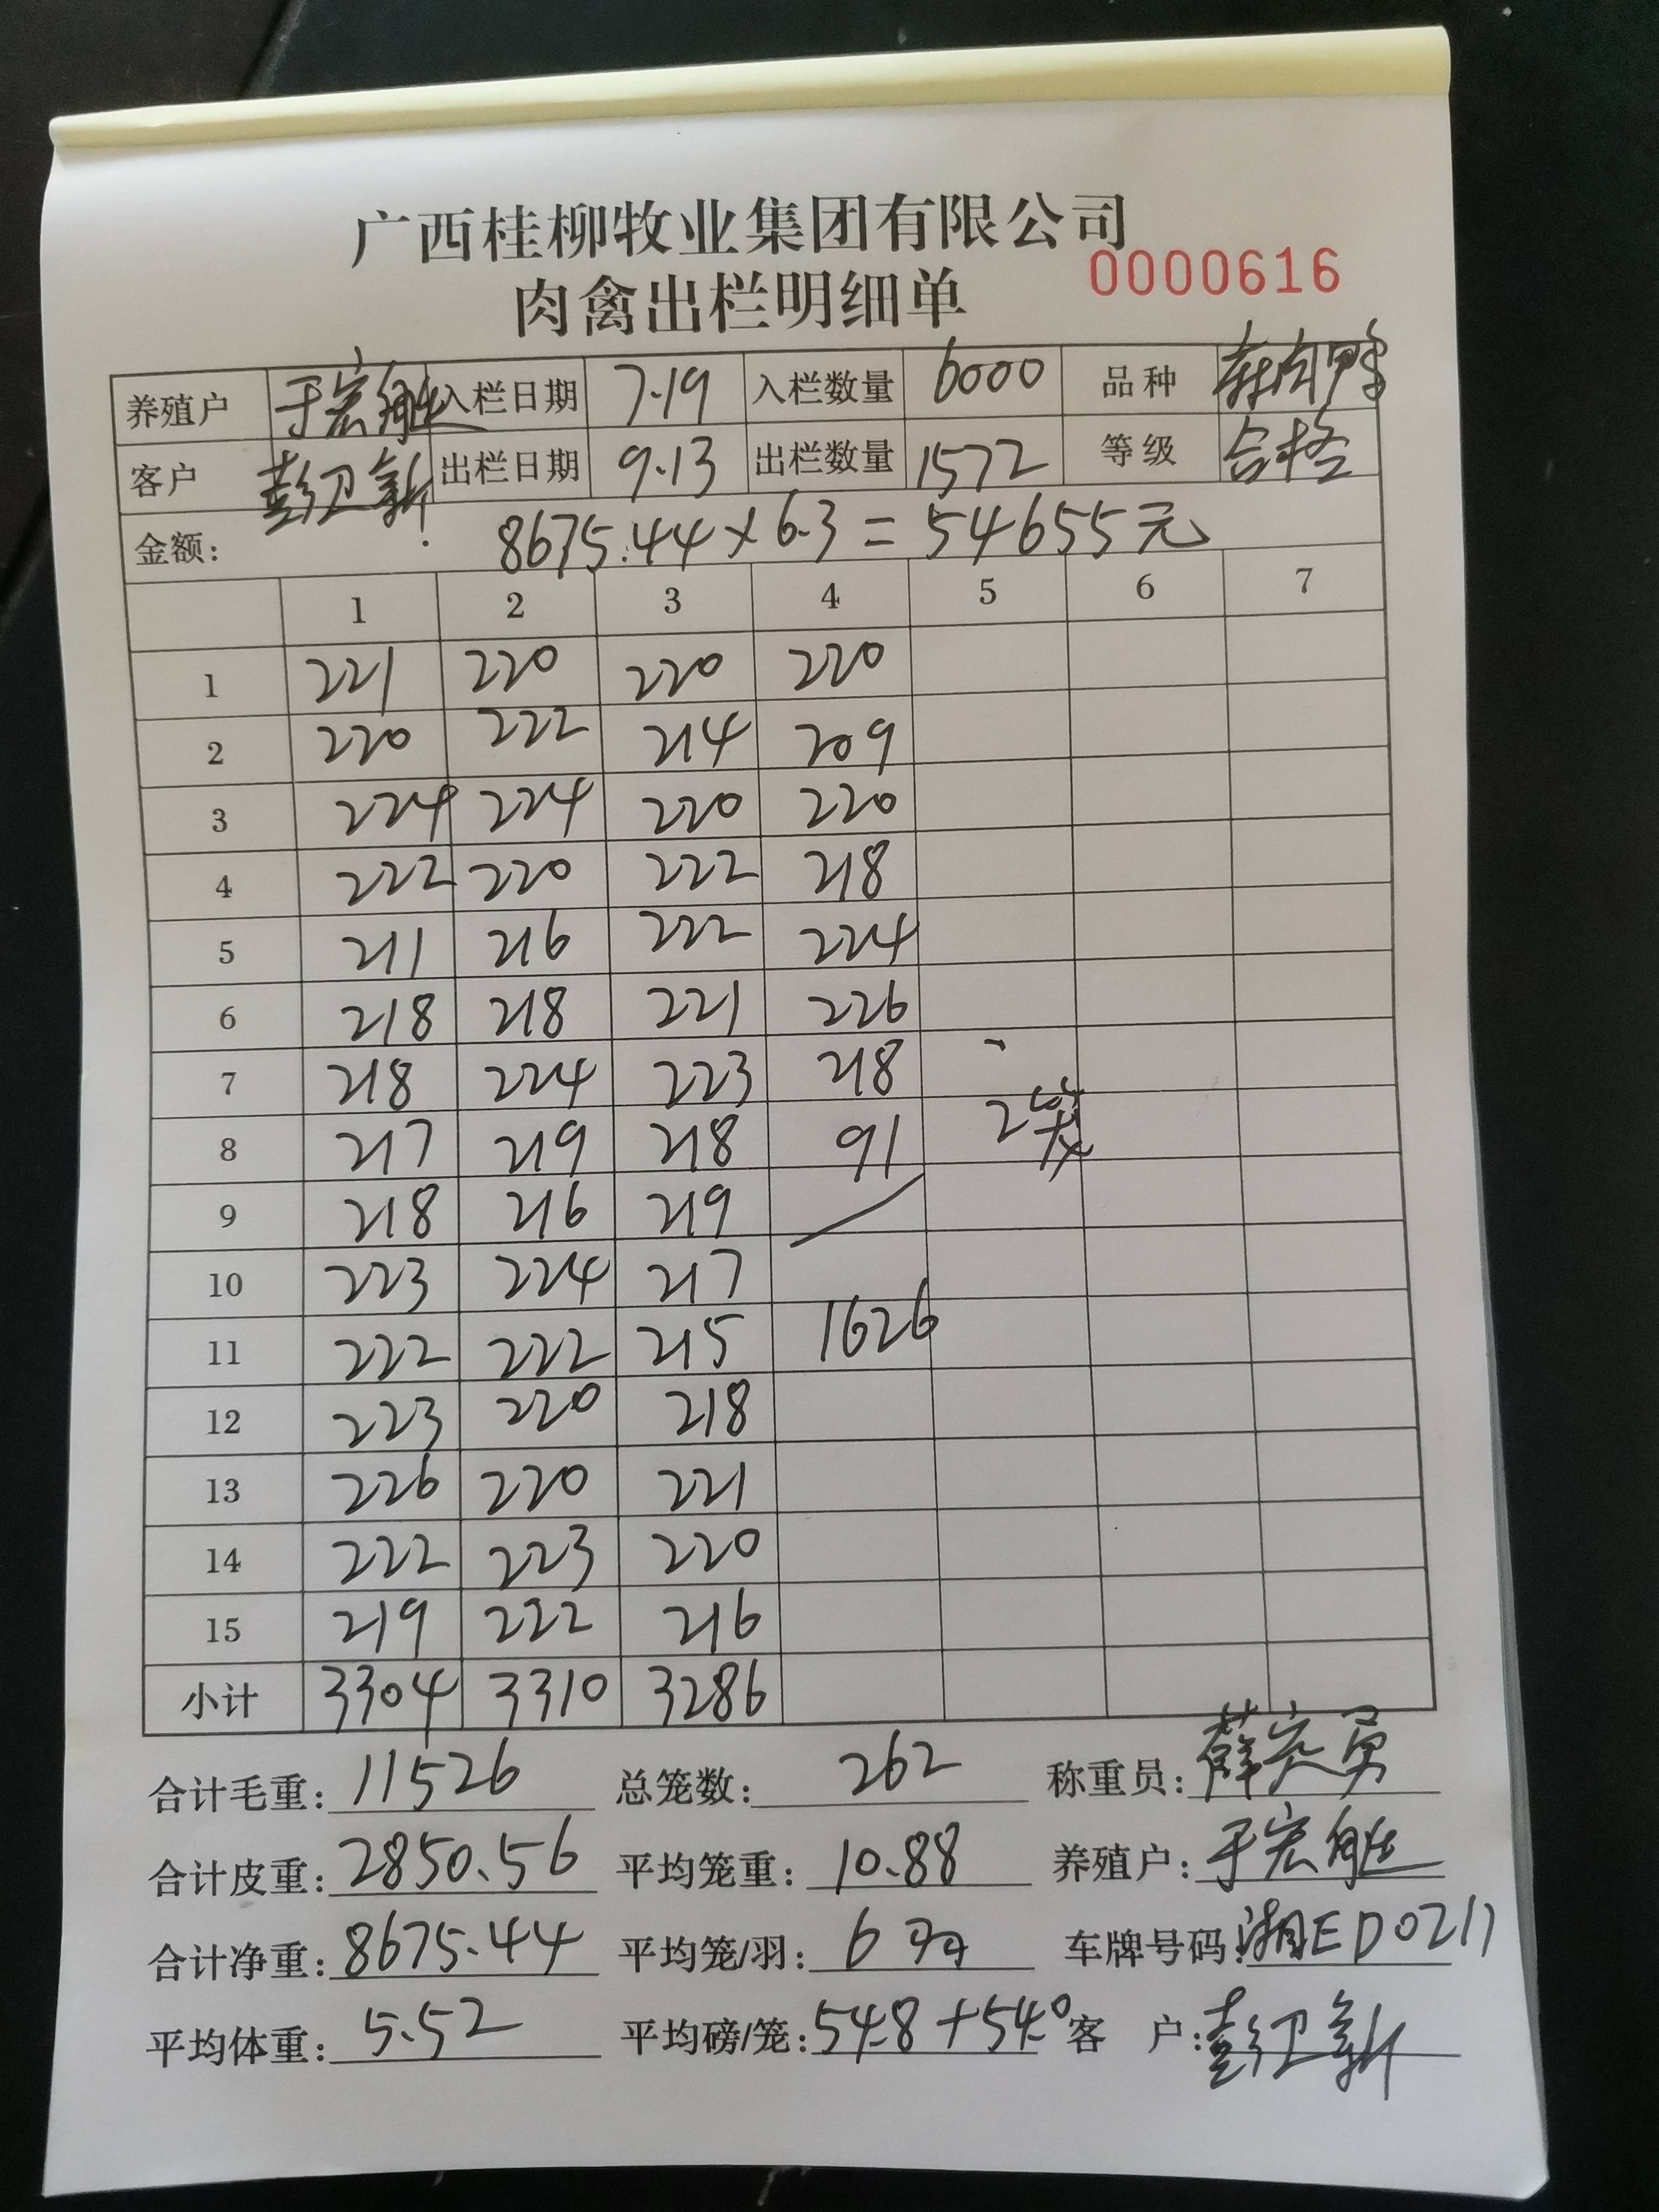 广西桂柳牧业集团有限公司
肉禽出栏明细单 0000616
养殖户 于宏胜 入栏日期 7.19 入栏数量 6000 品种
客户 彭卫新 出栏日期 9.13 出栏数量 1572 等级 合格
金额: 8675.44×6.3=54655元
1 2 3 4 5 6 7
1 221 220 220 220
2 220 222 214 209
3 224 224 220 220
4 222 220 222 218
5 211 216 222 224
6 218 218 221 226
7 218 224 223 218
8 217 219 218 91 2笼
9 218 216 219
10 223 224 217
11 222 222 215 1626
12 223 220 218
13 226 220 221
14 222 223 220
15 219 222 216
小计 3304 3310 3286
合计毛重: 11526 总笼数: 262 称重员:
合计皮重: 2850.56 平均笼重: 10.88 养殖户: 于宏胜
合计净重: 8675.44 平均笼/羽: 6羽 车牌号码: 湘ED0211
平均体重: 5.52 平均磅/笼: 54.8+54.0 客 户: 彭卫新